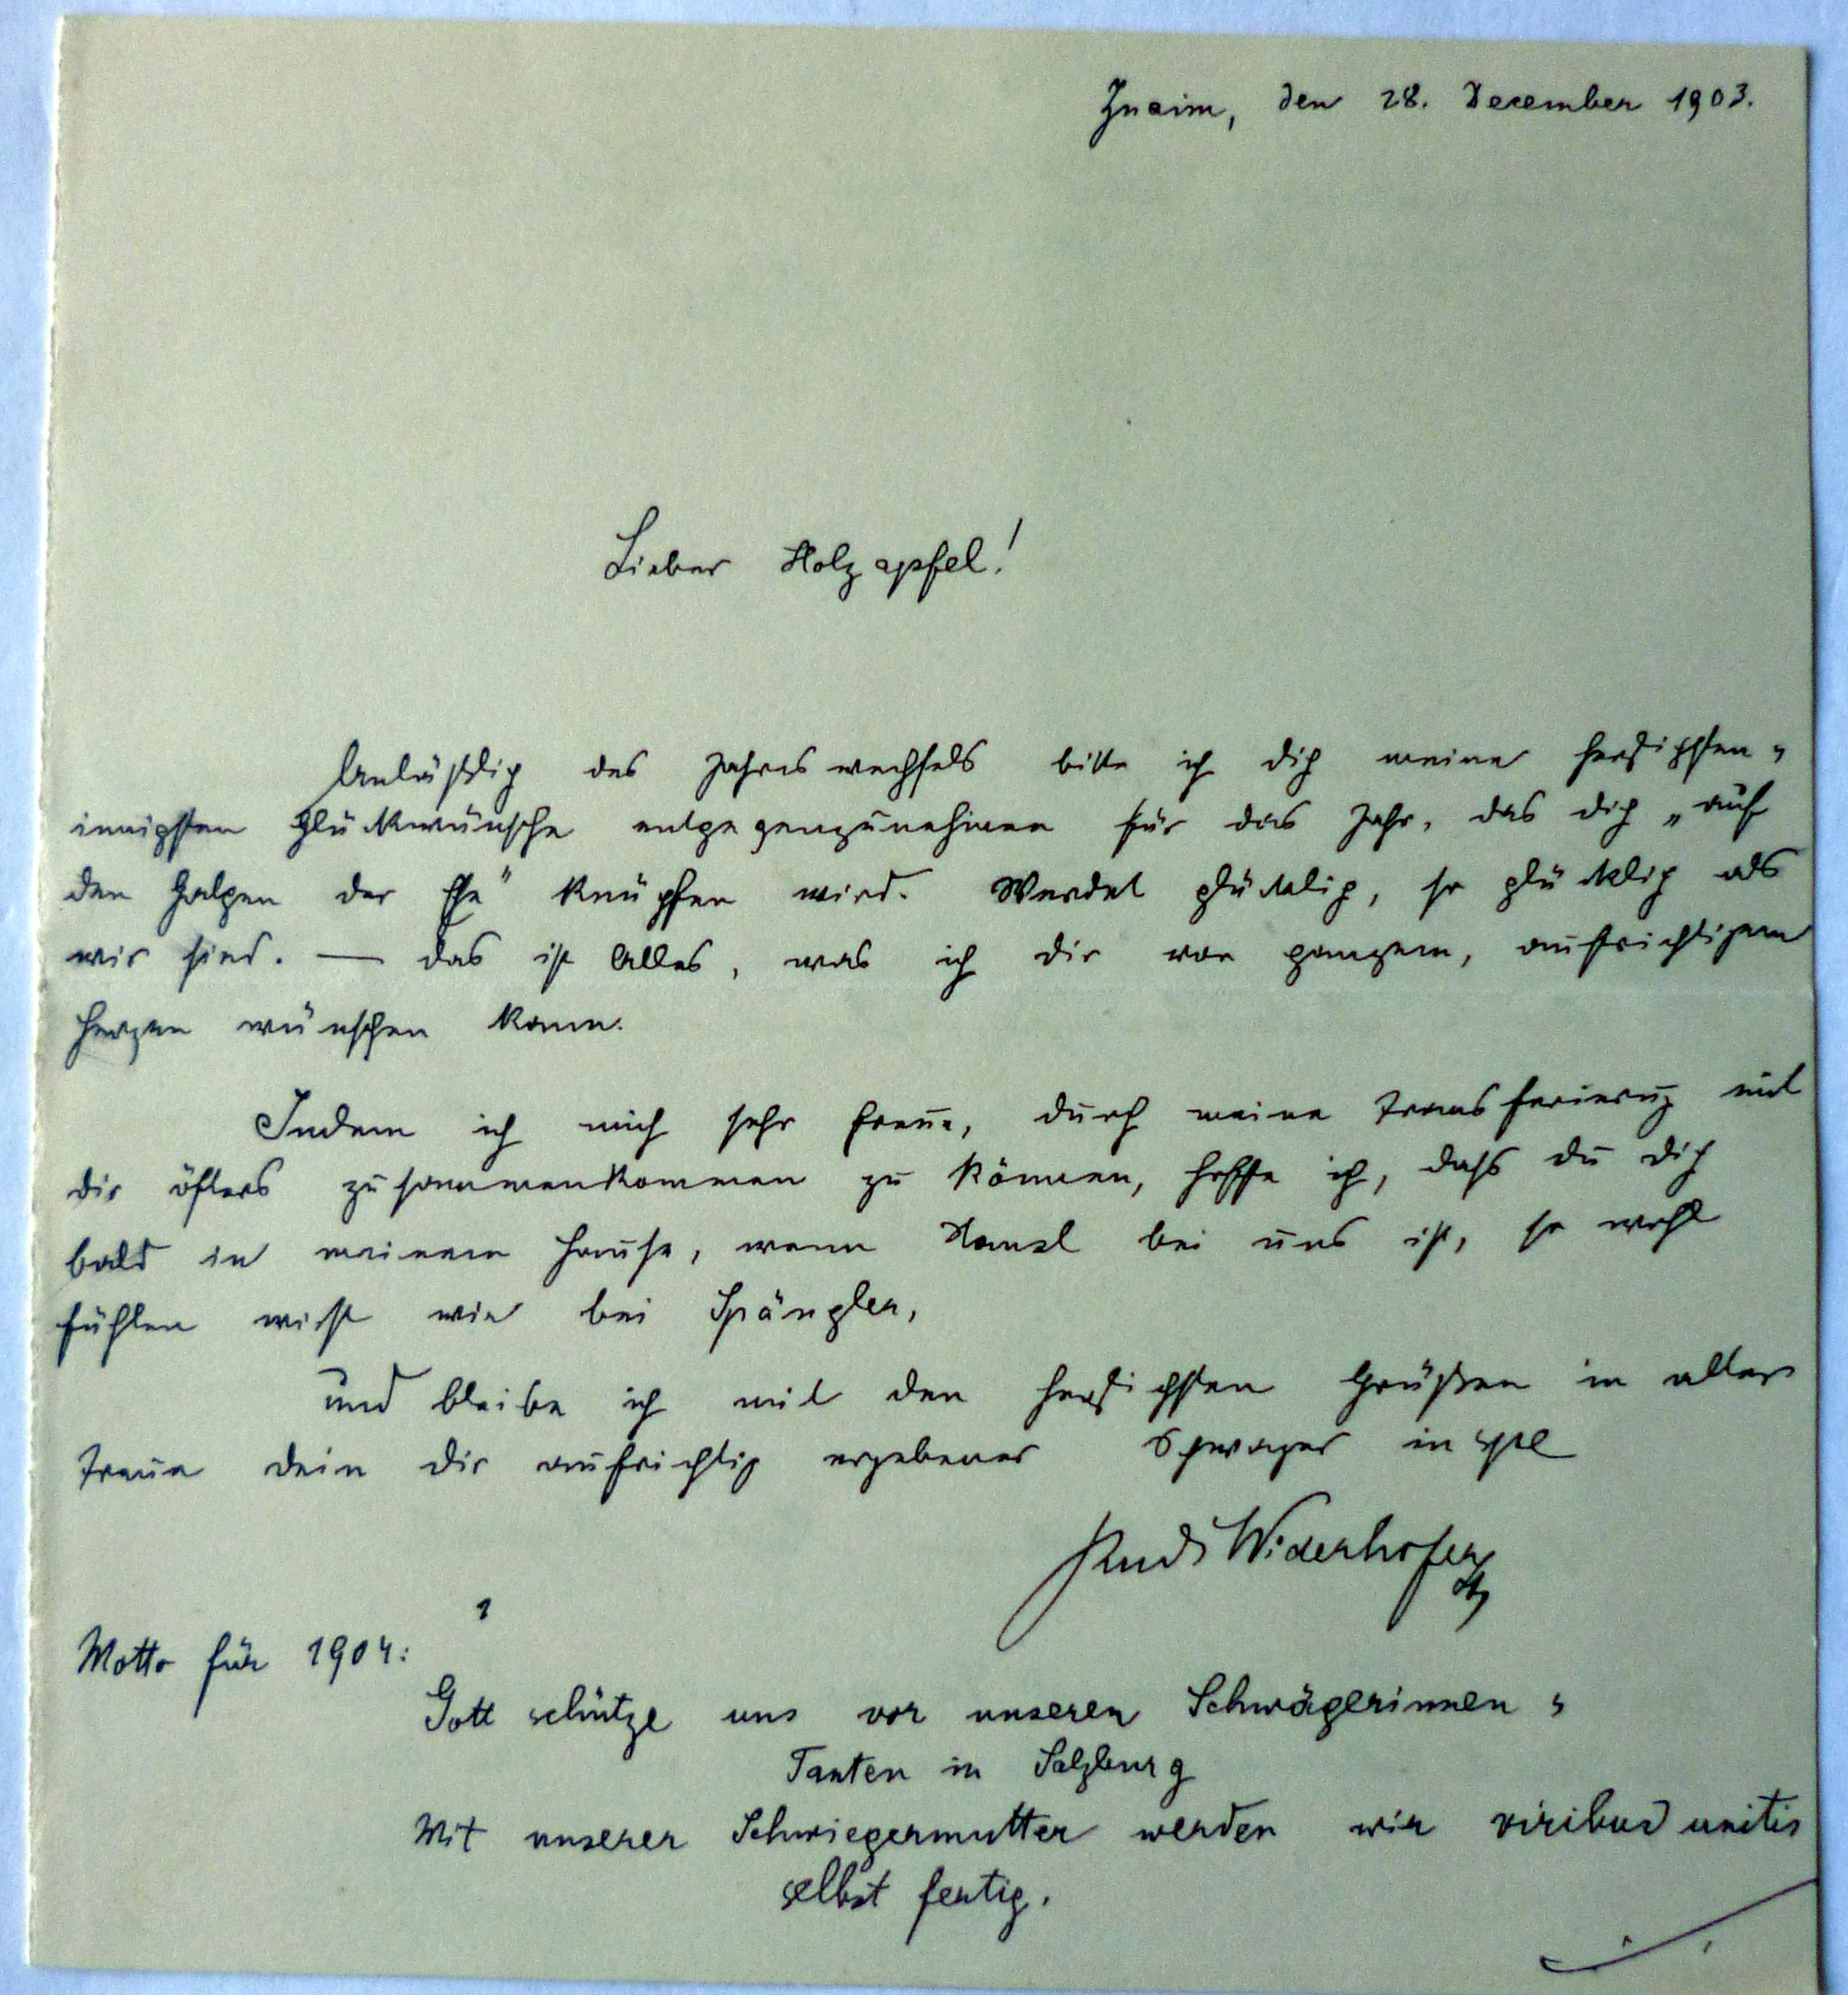 Znaim, den 28. December 1903.
Lieber Holzapfel!
Anläßlich des Jahreswechsels bitte ich dich meine herzlichsten,
innigsten Glückwünsche entgegenzunehmen für das Jahr, das dich „auf
den Galgen der Ehe" knüpfen wird. Werdet glücklich, so glücklich als
wir sind. — das ist Alles, was ich dir von ganzem, aufrichtigem
Herzen wünschen kann.
Indem ich mich sehr freue, durch meine Transferierung mit
dir öfters zusammenkommen zu können, hoffe ich, dass du dich
bald in meinem Hause, wenn Hansl bei uns ist, so wohl
fühlen wirst wie bei Spängler,
und bleibe ich mit den herzlichsten Grüßen in aller
Treue dein dir aufrichtig ergebener Schwager in spe
Rudi Widerhofer
Motto für 1904:
Gott schütze uns vor unseren Schwägerinnen,
Tanten in Salzburg
Mit unserer Schwiegermutter werden wir viribus unitis
selbst fertig.